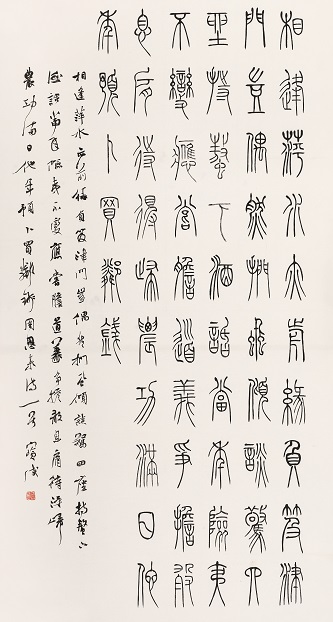 相逢萍水亦前緣負笈津
門豈偶然捫虱傾談驚四
座持螯下酒話當年險夷
不變應嘗膽道義爭擔敢
息肩待得歸農功滿日他
年預卜買鄰錢
相逢萍水亦前緣負笈津門豈偶然捫虱傾談驚四座持螯下
酒話當年險夷不變應嘗膽道義爭擔敢息肩待得歸
農功滿日他年預卜買鄰錢周恩來詩一首